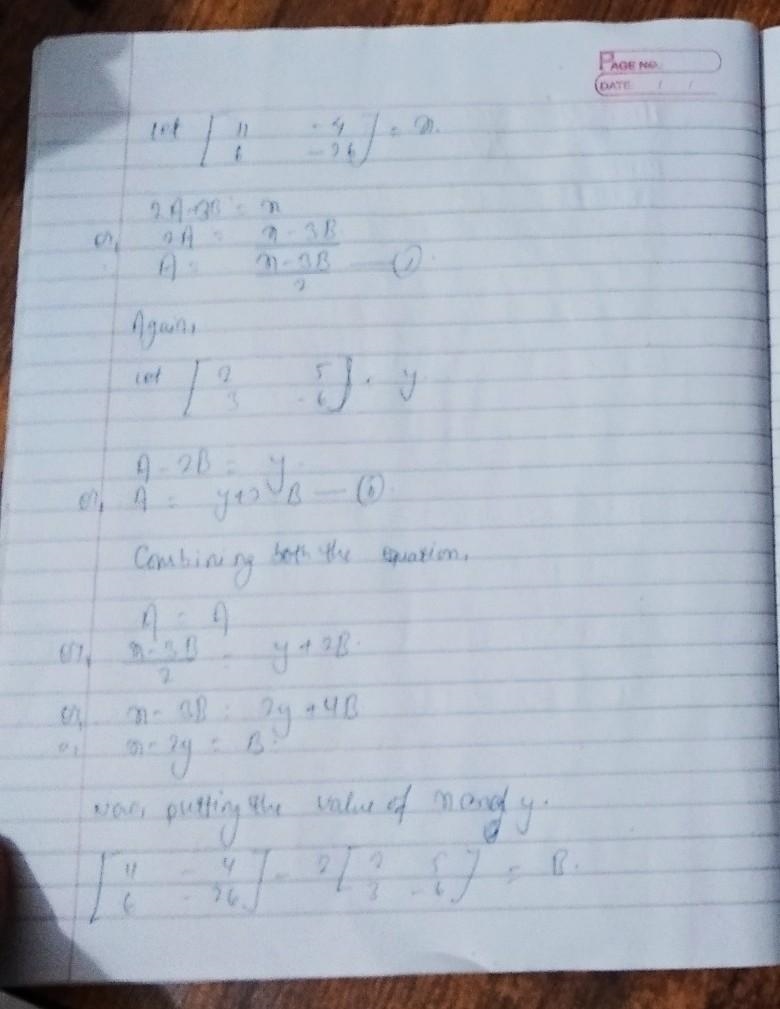 PAGE NO.
DATE / /
let [ 11 -4 ] = x.
6 -26
2A-3B = x
or, 2A = x-3B
A = x-3B —(i).
2
Again,
let [ 2 5 ] = y
3 -6
A-2B = y.
or, A = y+2B —(ii).
Combining both the equation,
A = A
or, x-3B = y+2B.
2
or, x-3B = 2y+4B
or, x-2y = B.
Now, putting the value of x and y.
[ 11 -4 ] - 2 [ 2 5 ] = B.
6 -26 3 -6